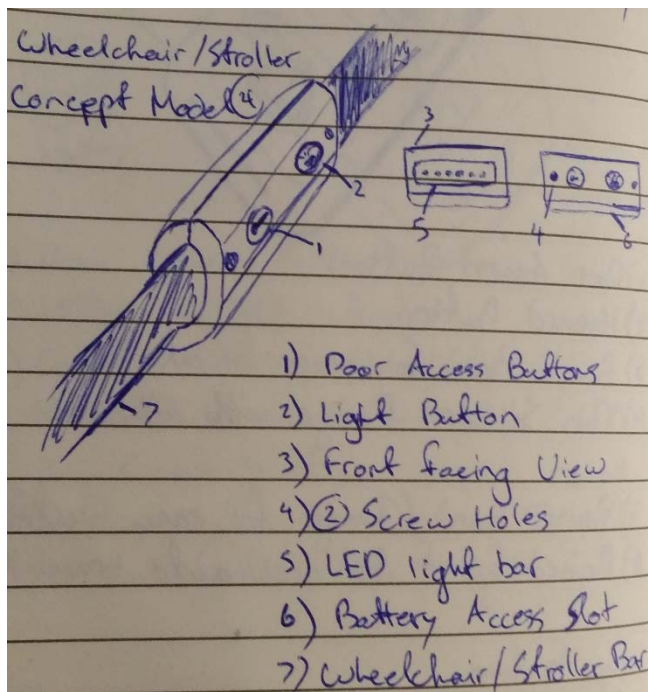 Wheelchair/Stroller
Concept Model 4
2
1
7
3
5
4
6
1) Door Access Buttons
2) Light Button
3) Front facing View
4) 2 Screw Holes
5) LED light bar
6) Battery Access Slot
7) Wheelchair/Stroller Bar